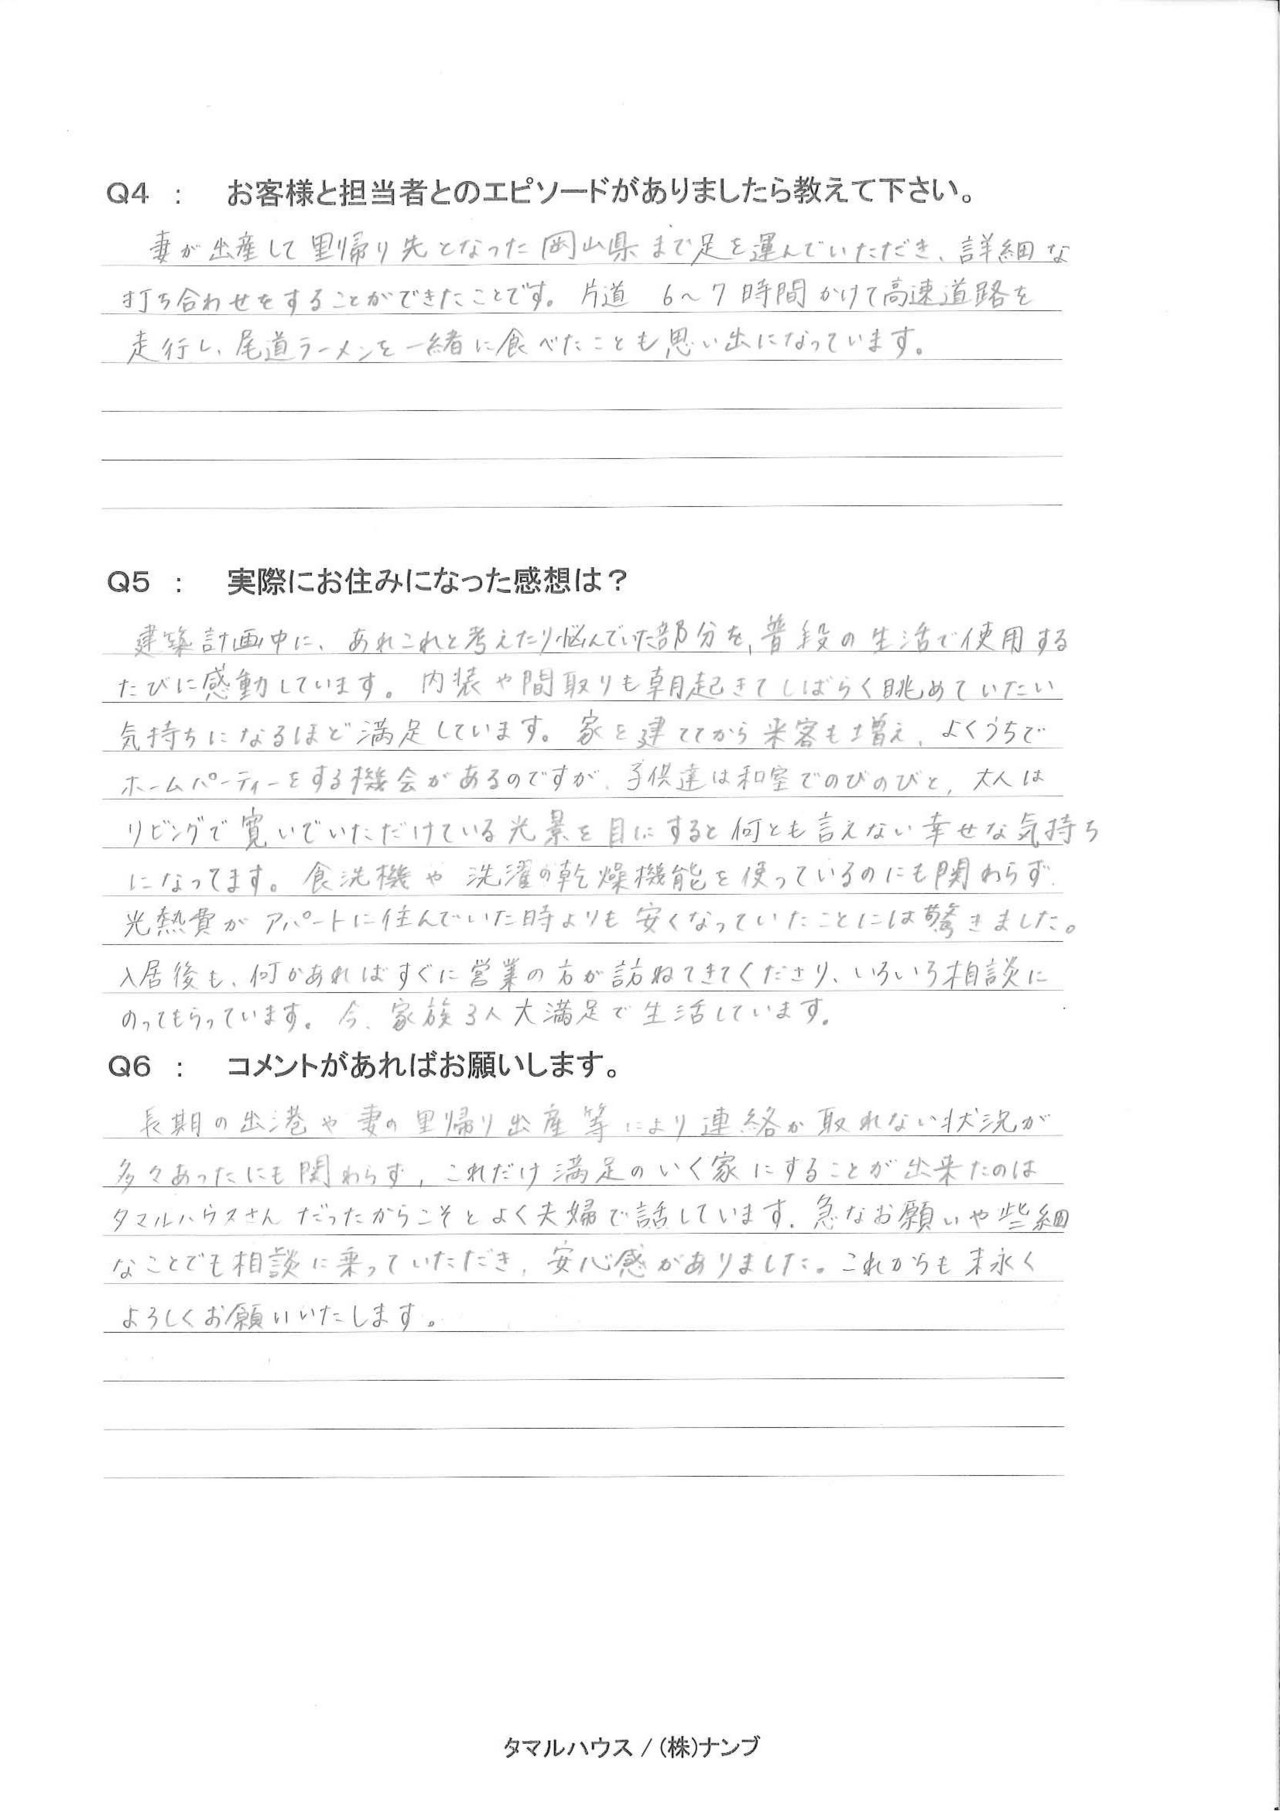 Q4 : お客様と担当者とのエピソードがありましたら教えて下さい。
妻が出産して里帰り先となった岡山県まで足を運んでいただき、詳細な
打ち合わせをすることができたことです。片道 6～7時間かけて高速道路を
走行し、尾道ラーメンを一緒に食べたことも思い出になっています。
Q5 : 実際にお住みになった感想は？
建築計画中に、あれこれと考えたり悩んでいた部分を、普段の生活で使用する
たびに感動しています。内装や間取りも朝起きてしばらく眺めていたい
気持ちになるほど満足しています。家を建ててから来客も増え、よくうちで
ホームパーティーをする機会があるのですが、子供達は和室でのびのびと、大人は
リビングで寛いでいただけている光景を目にすると何とも言えない幸せな気持ち
になってます。食洗機や洗濯の乾燥機能を使っているのにも関わらず、
光熱費がアパートに住んでいた時よりも安くなっていたことには驚きました。
入居後も、何かあればすぐに営業の方が訪ねてきてくださり、いろいろ相談に
のってもらっています。今、家族3人大満足で生活しています。
Q6 : コメントがあればお願いします。
長期の出港や妻の里帰り出産等により連絡が取れない状況が
多々あったにも関わらず、これだけ満足のいく家にすることが出来たのは
タマルハウスさんだったからこそとよく夫婦で話しています。急なお願いや些細
なことでも相談に乗っていただき、安心感がありました。これからも末永く
よろしくお願いいたします。
タマルハウス / (株)ナンブ